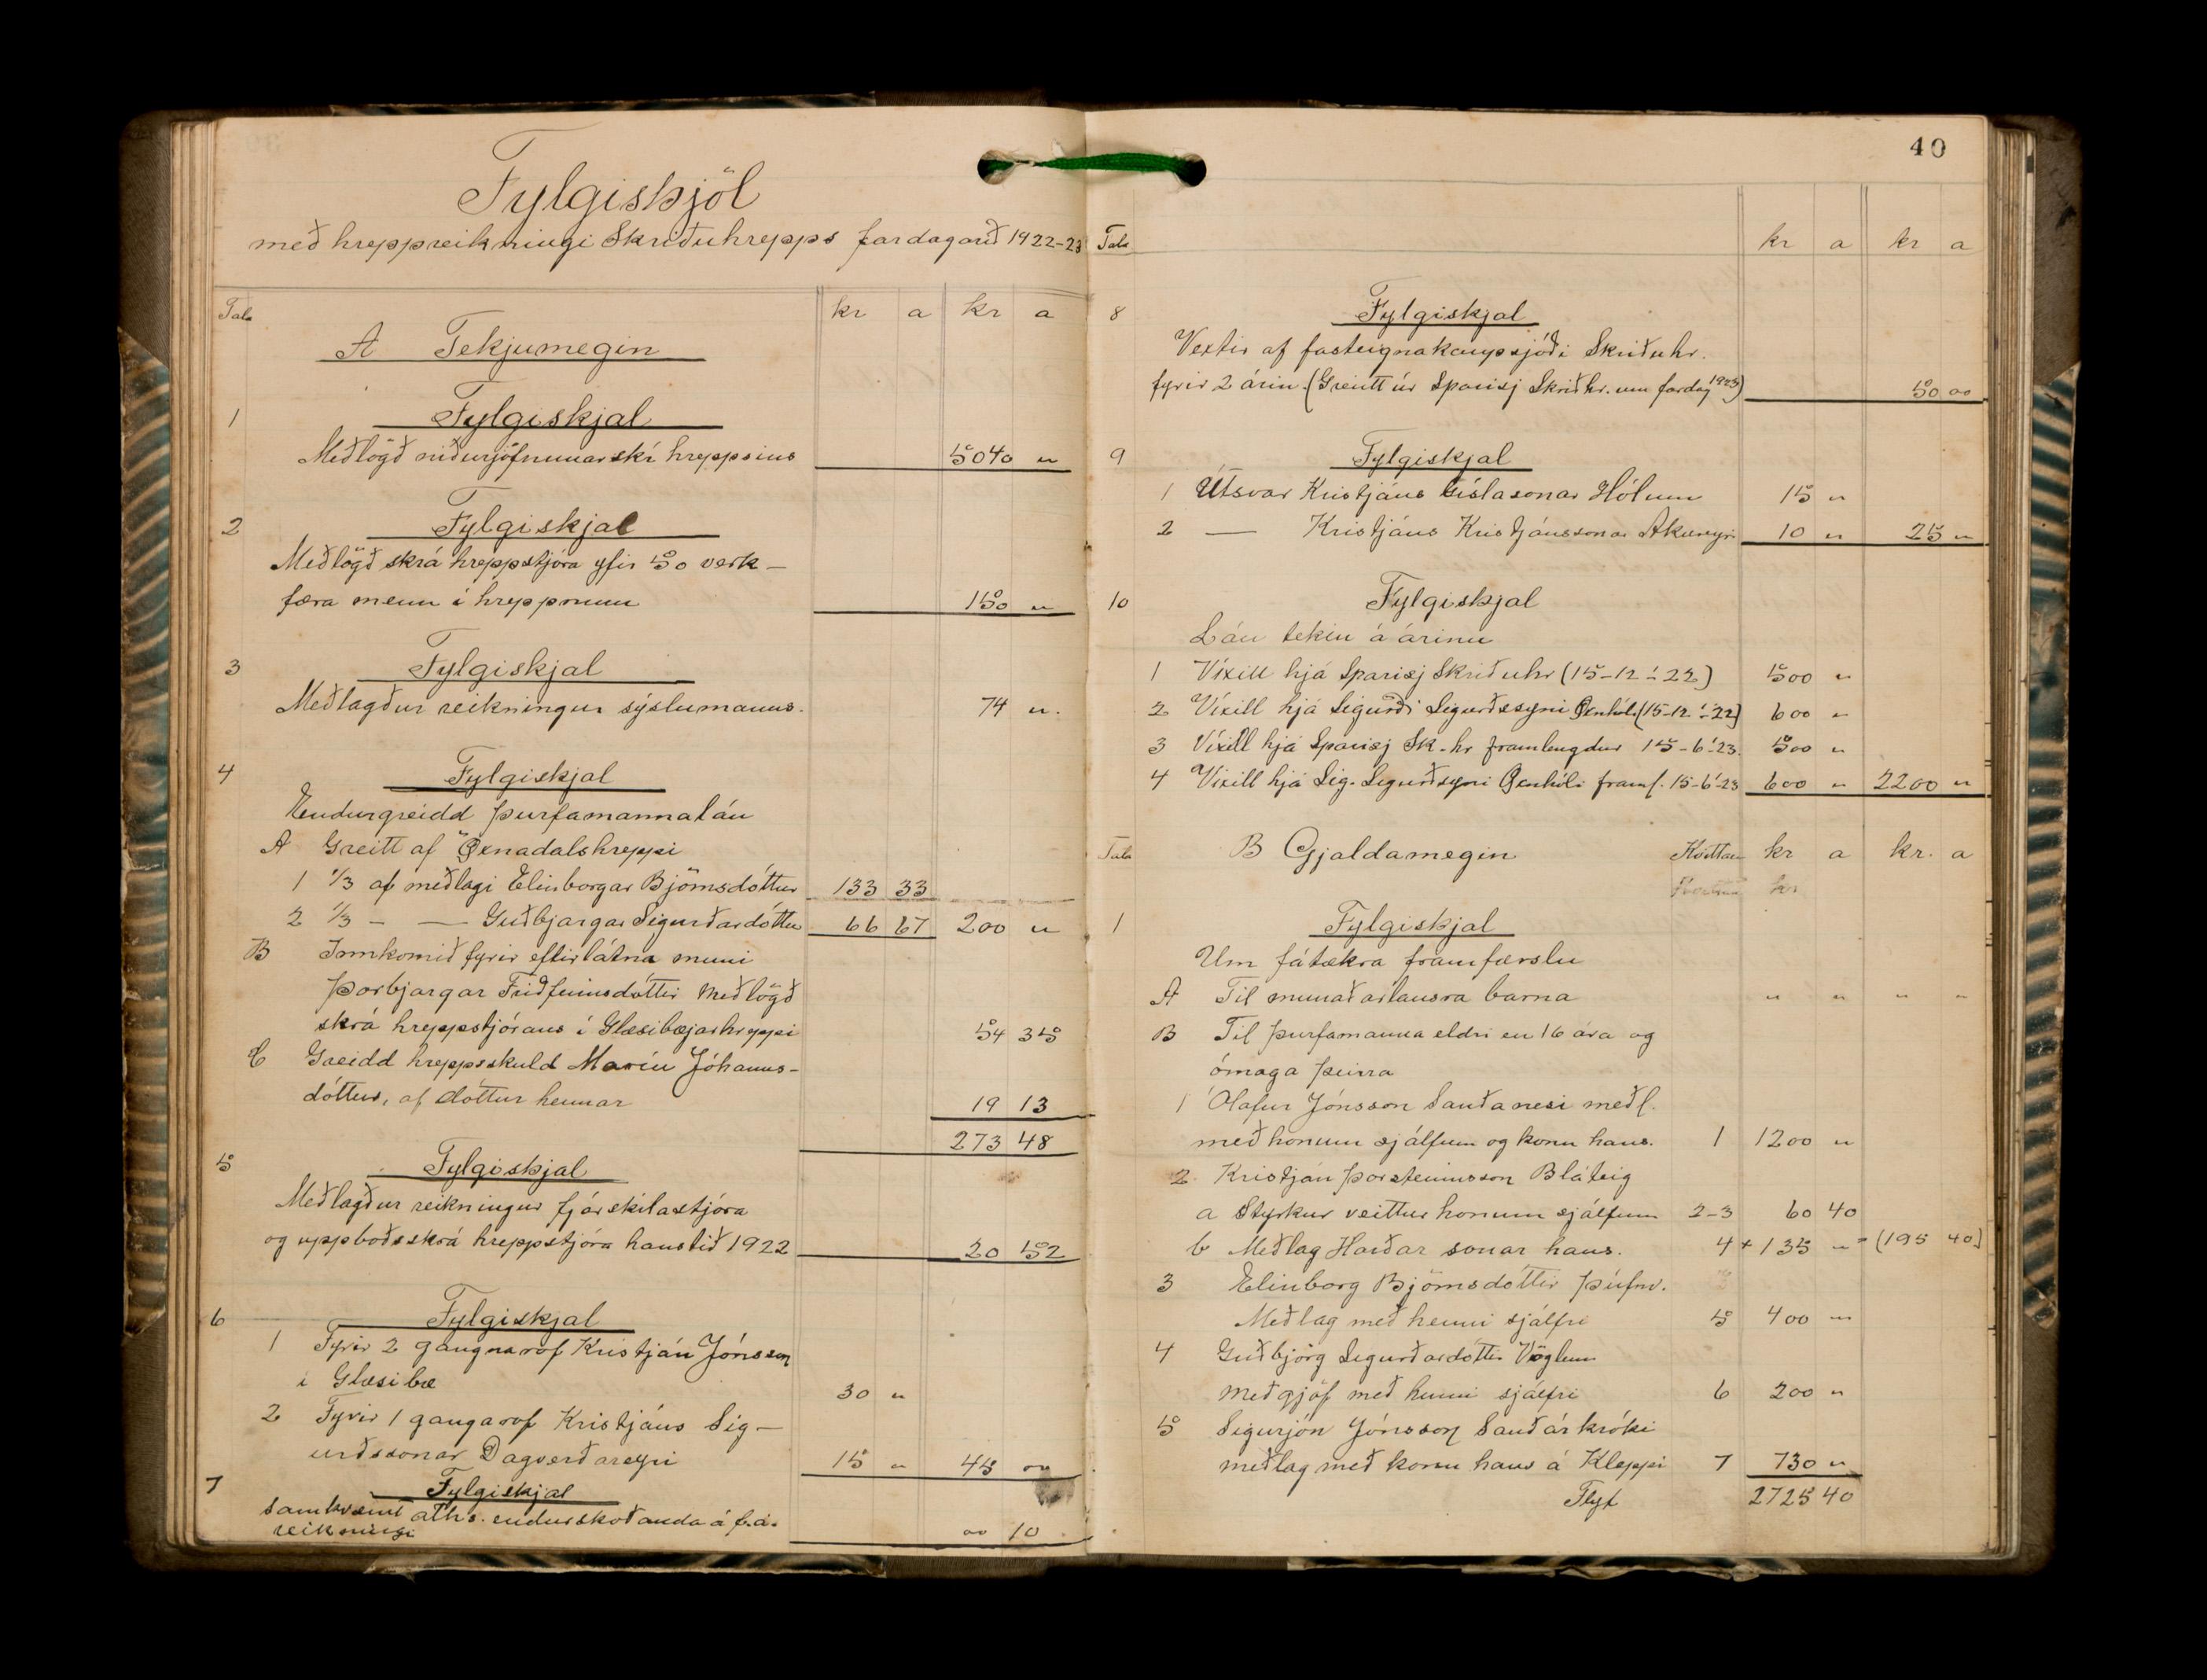 Fylgiskjöl
með hreppreikningi Skriðuhrepps fardagaárið 1922-23
Tala kr a kr a
A Tekjumegin
1 Fylgiskjal
Meðlögð niðurjöfnunarskrá hreppsins 5040 "
2 Fylgiskjal
Meðlögð skrá hreppstjóra yfir 50 verk-
færa menn í hreppnum 150 "
3 Fylgiskjal
Meðlagður reikningur sýslumanns. 74 ".
4 Fylgiskjal
Endurgreidd þurfamannalán
A Greitt af Öxnadalshreppi
1 1/3 af meðlagi Elinborgar Björnsdóttur 133 33
2 1/3 - — Guðbjargar Sigurðardóttur 66 67 200 "
B Innkomið fyrir eftirlátna muni
Þorbjargar Friðfinnsdóttir Meðlögð
skrá hreppstjórans í Glæsibæjarhreppi 54 35
C Greidd hreppsskuld Maríu Jóhanns-
dóttur, af dóttur hennar 19 13
273 48
5 Fylgiskjal
Meðlagður reikningur fjárskilastjóra
og uppboðsskrá hreppstjóra haustið 1922 20 52
6 Fylgiskjal
1 Fyrir 2 gangnarof Kristján Jónsson
í Glæsibæ 30 "
2 Fyrir 1 gangarof Kristjáns Sig-
urðssonar Dagverðareyri 15 " 45 "
7 Fylgiskjal
Samkvæmt aths. endurskoðanda á f.á.
reikningi " 10
40
Tala kr a kr a
8 Fylgiskjal
Vextir af fasteignakaupsjóði Skriðuhr.
fyrir 2 árin. (Greitt úr Sparisj Skriðhr. um fardag 1923) 50 00
9 Fylgiskjal
1 Útsvar Kristjáns Gíslasonar Hólum 15 "
2 — Kristjáns Kristjánssonar Akureyri 10 " 25 "
10 Fylgiskjal
Lán tekin á árinu
1 Víxill hjá Sparisj Skriðuhr (15-12-'22) 500 "
2 Víxill hjá Sigurði Sigurðssyni Öxnhóli (15-12-'22) 600 "
3 Víxill hjá Sparisj Sk-hr framlengdur 15-6-'23. 500 "
4 Víxill hjá Sig. Sigurðsyni Öxnhóli framl. 15-6-'23 600 " 2200 "
Tala B Gjaldamegin Kvittan kr a kr. a
1 Fylgiskjal
Um fátækra framfærslu
A Til munaðarlausra barna " " " "
B Til þurfamanna eldri en 16 ára og
ómaga þeirra
1 Ólafur Jónsson Sauðanesi meðl.
með honum sjálfum og konu hans. 1 1200 "
2. Kristján Þorsteinsson Bláteig
a Styrkur veittur honum sjálfum 2-3 60 40
b Meðlag Harðar sonar hans. 4 + 135 " = (195 40)
3 Elinborg Björnsdóttir Þúfnv.
Meðlag með henni sjálfri 5 400 "
4 Guðbjörg Sigurðardóttir Vöglum
meðgjöf með henni sjálfri 6 200 "
5 Sigurjón Jónsson Sauðárkróki
meðlag með konu hans á Kleppi 7 730 "
Flyt 2725 40